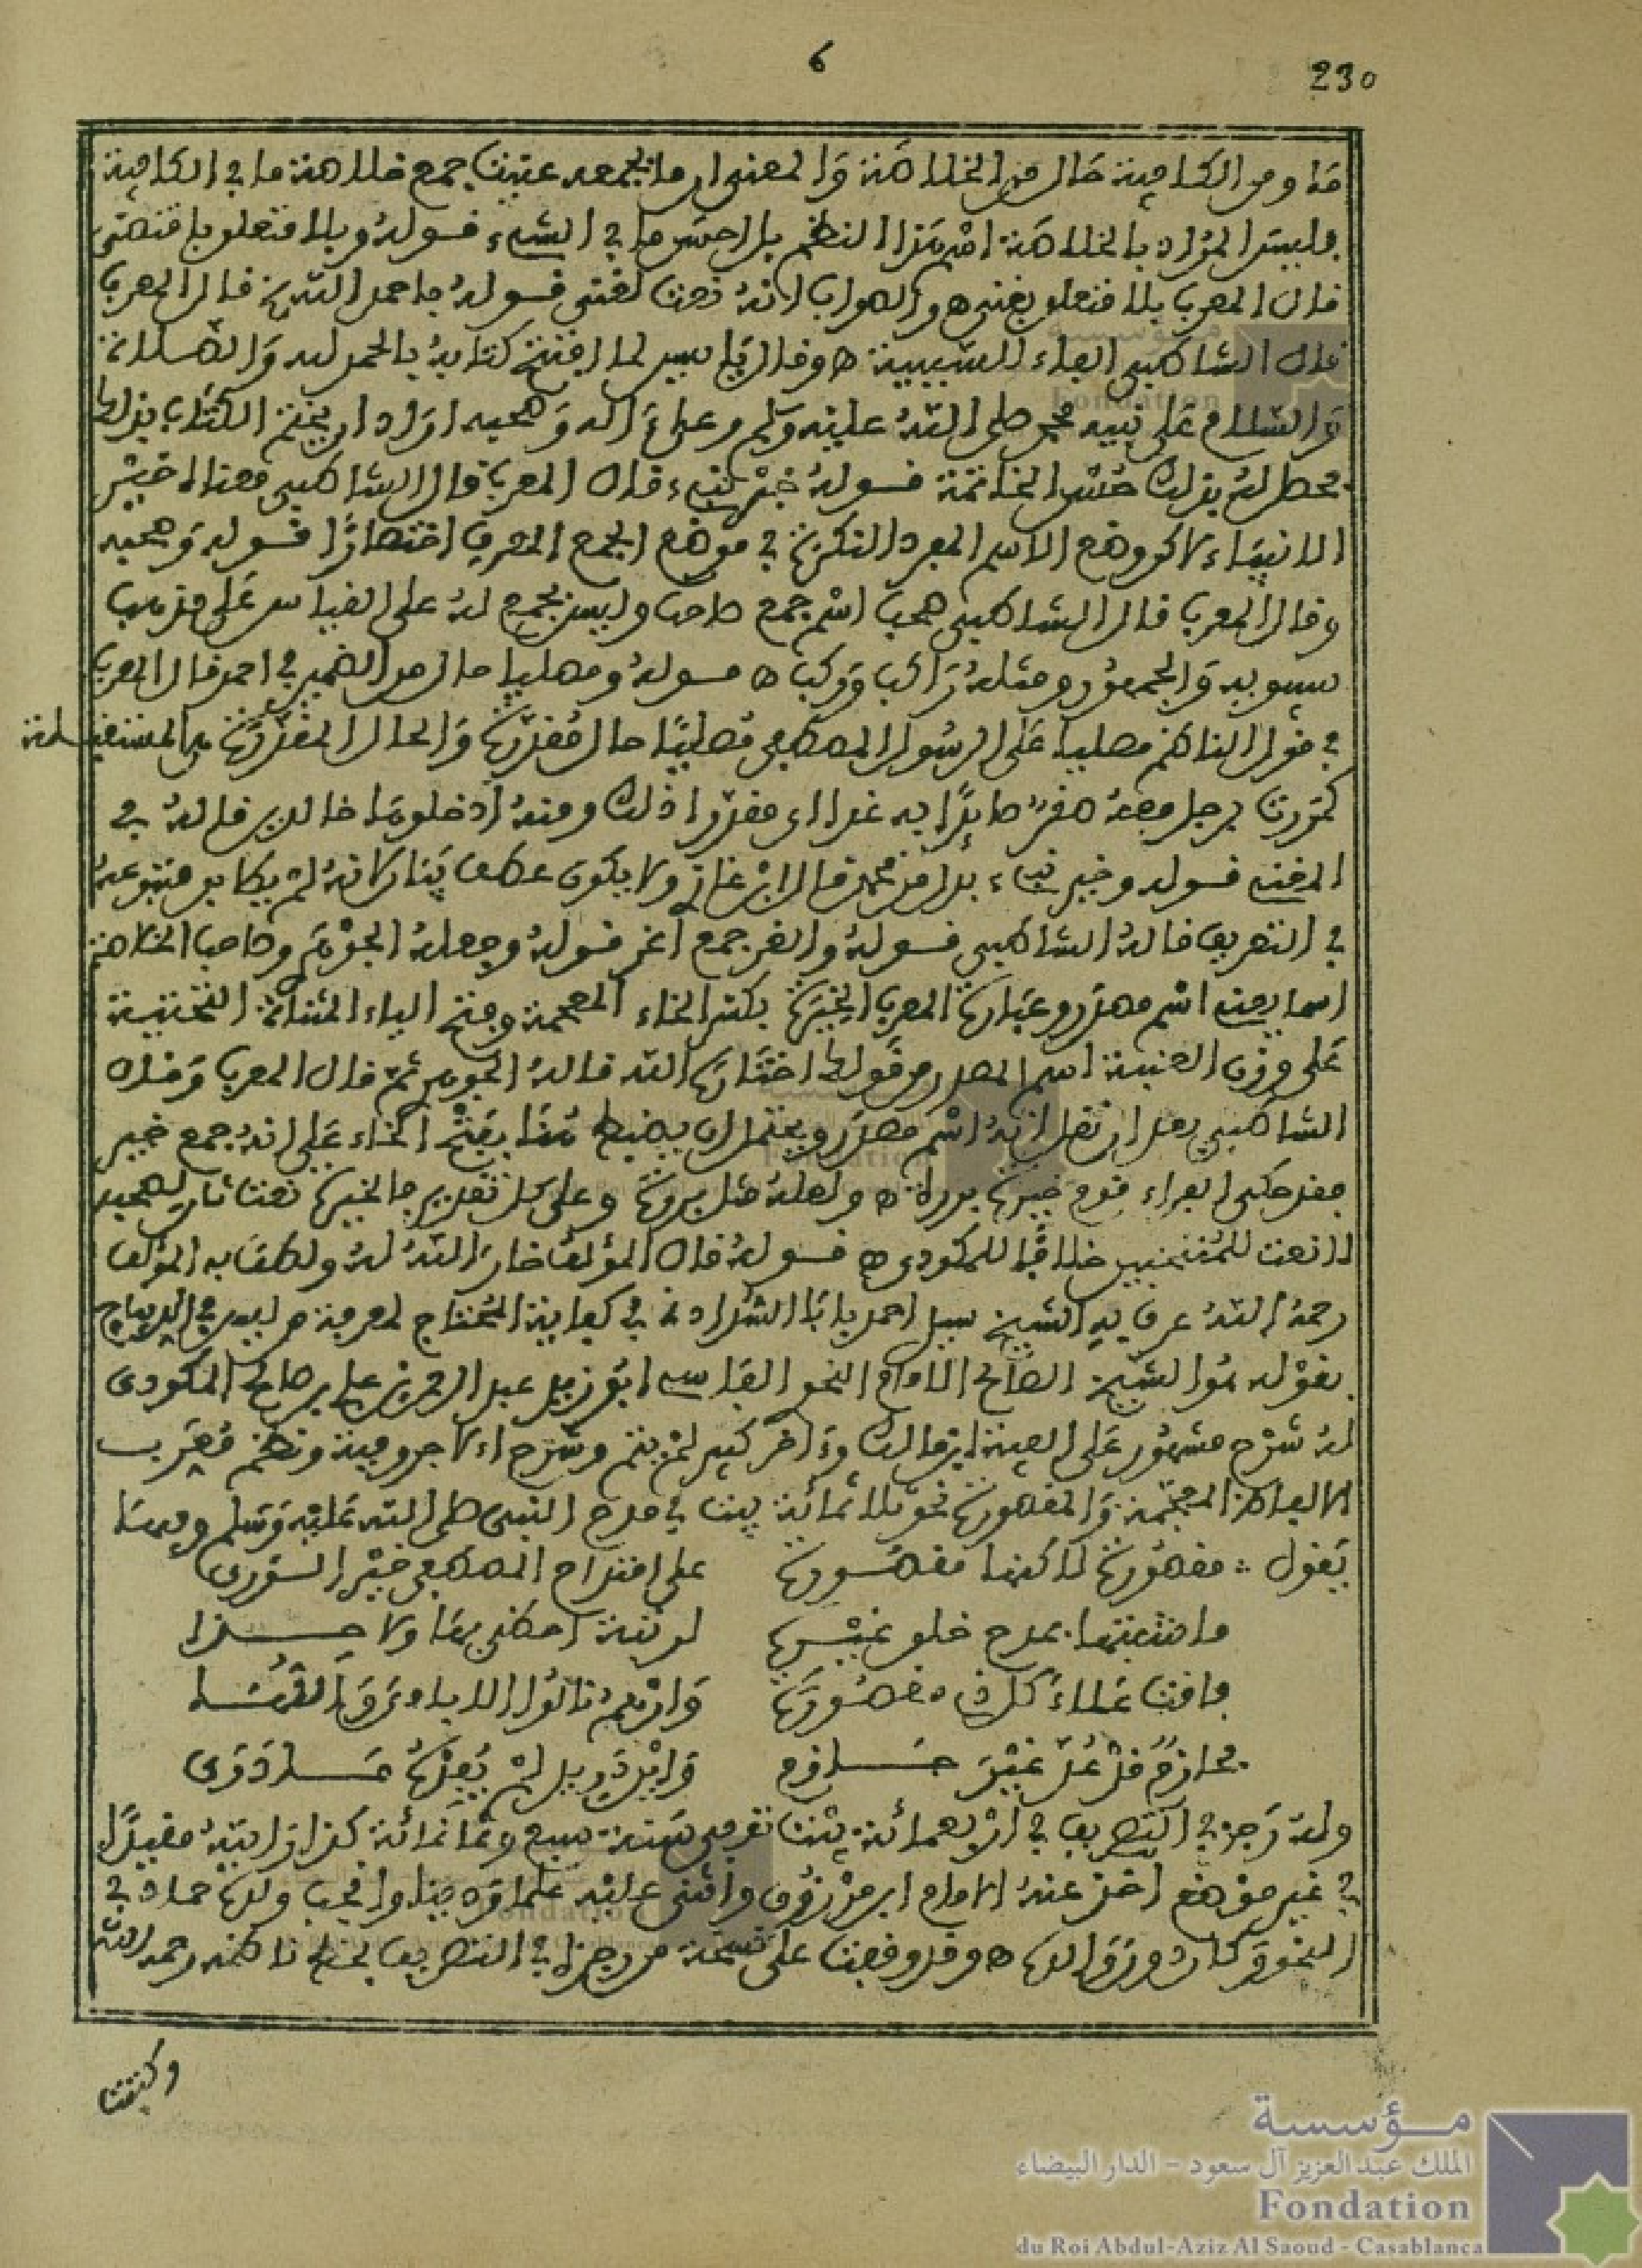 6
230
ما ومن الكافية حال من الخلاصة والمعنى ان ما جمعه عنيت جمع خلاصة ما في الكافية
فليس المراد بالخلاصة اسم هذا النظم بل احسن ما في الشيء قوله وبلا متعلق باقتضى
قال المعرب بلا متعلق بغنى ه والصواب انه نعت لغنى قوله فاحمد الله قال المعرب
قال الشاطبي الفاء للسببية ه وقال يا سين لما افتتح كتابه بالحمد لله والصلاة
والسلام على نبيه محمد صلى الله عليه وسلم وعلى آله وصحبه اراد ان يختم الكتاب بذلك
فحصل له بذلك حسن الخاتمة قوله خير نبيء قال المعرب قال الشاطبي معناه خير
الانبياء لاكن وضع الاسم المفرد النكرة في موضع الجمع المعرف اختصارا قوله وصحبه
وقال المعرب قال الشاطبي صحب اسم جمع صاحب وليس بجمع له على القياس على مذهب
سيبويه والجمهور ومثله راكب وركب ه قوله ومصليا حال من الضمير في احمد قال المعرب
في قول الناظم مصليا على الرسول المصطفى مصليا حال مقدرة والحال المقدرة هي المستقبلة
كمررت برجل معه صقر صائدا به غدا اي مقدرا ذلك ومنه ادخلوها خالدين قاله في
المغني قوله وخير نبيء بدل من محمد قال ابن غازي ولا يكون عطف بيان لانه لم يطابق متبوعه
في التعريف قاله الشاطبي قوله والغر جمع اغر قوله وجعله الجوهري وصاحب الخلاصة
اسما يعني اسم مصدر وعبارة المعرب الخيرة بكسر الخاء المعجمة وفتح الياء المثناة التحتية
على وزن العنبة اسم المصدر من قولك اختاره الله قاله الجوهري ثم قال المعرب وقال
الشاطبي بعد ان نقل انه اسم مصدر ويحتمل ان يضبط هنا بفتح الخاء على انه جمع خير
فقد حكى الفراء قوم خيرة بررة ه ولعله مثل بررة وعلى كل تقدير فالخيرة نعت ثان لصحبه
لا نعت للمنتخبين خلافا للمكودي ه قوله قال المؤلف خار الله له ولطف به المؤلف
رحمه الله عرف به الشيخ سيدي احمد بابا السوداني في كفاية المحتاج لمعرفة من ليس في الديباج
بقوله هو الشيخ الصالح الامام النحو الفاسي ابو زيد عبد الرحمن بن علي بن صالح المكودي
له شرح مشهور على الفية ابن مالك وءاخر كبير لم يتم وشرح الاجرومية ونظم معرب
الالفاظ المعجمة والمقصورة نحو ثلاثمائة بيت في مدح النبي صلى الله عليه وسلم وفيها
يقول : مقصورة لاكنها مقصورة على امتداح المصطفى خير الورى
ما شبتها بمدح خلق غيره لرتبة احظى بها ولا جدا
فاقت علاء كل ذي مقصورة وازهم نالوا الايادي واللها
فحازم قد عد غير حازم وابن دريد لم يفده ما درى
وله رجز في التصريف في اربعمائة بيت توفي سنة سبع وثمانمائة كذا رايته مقيدا
في غير موضع اخذ عنه الامام ابن مرزوق واثنى عليه علما ودينا وانجب ولده حماد في
النحو وكان ورث والده ه وقد وقفت على نسخة من رجزه في التصريف بخط ناظمه رحمه الله
وكتبت
مؤسسة
الملك عبد العزيز آل سعود - الدار البيضاء
Fondation
du Roi Abdul-Aziz Al Saoud - Casablanca